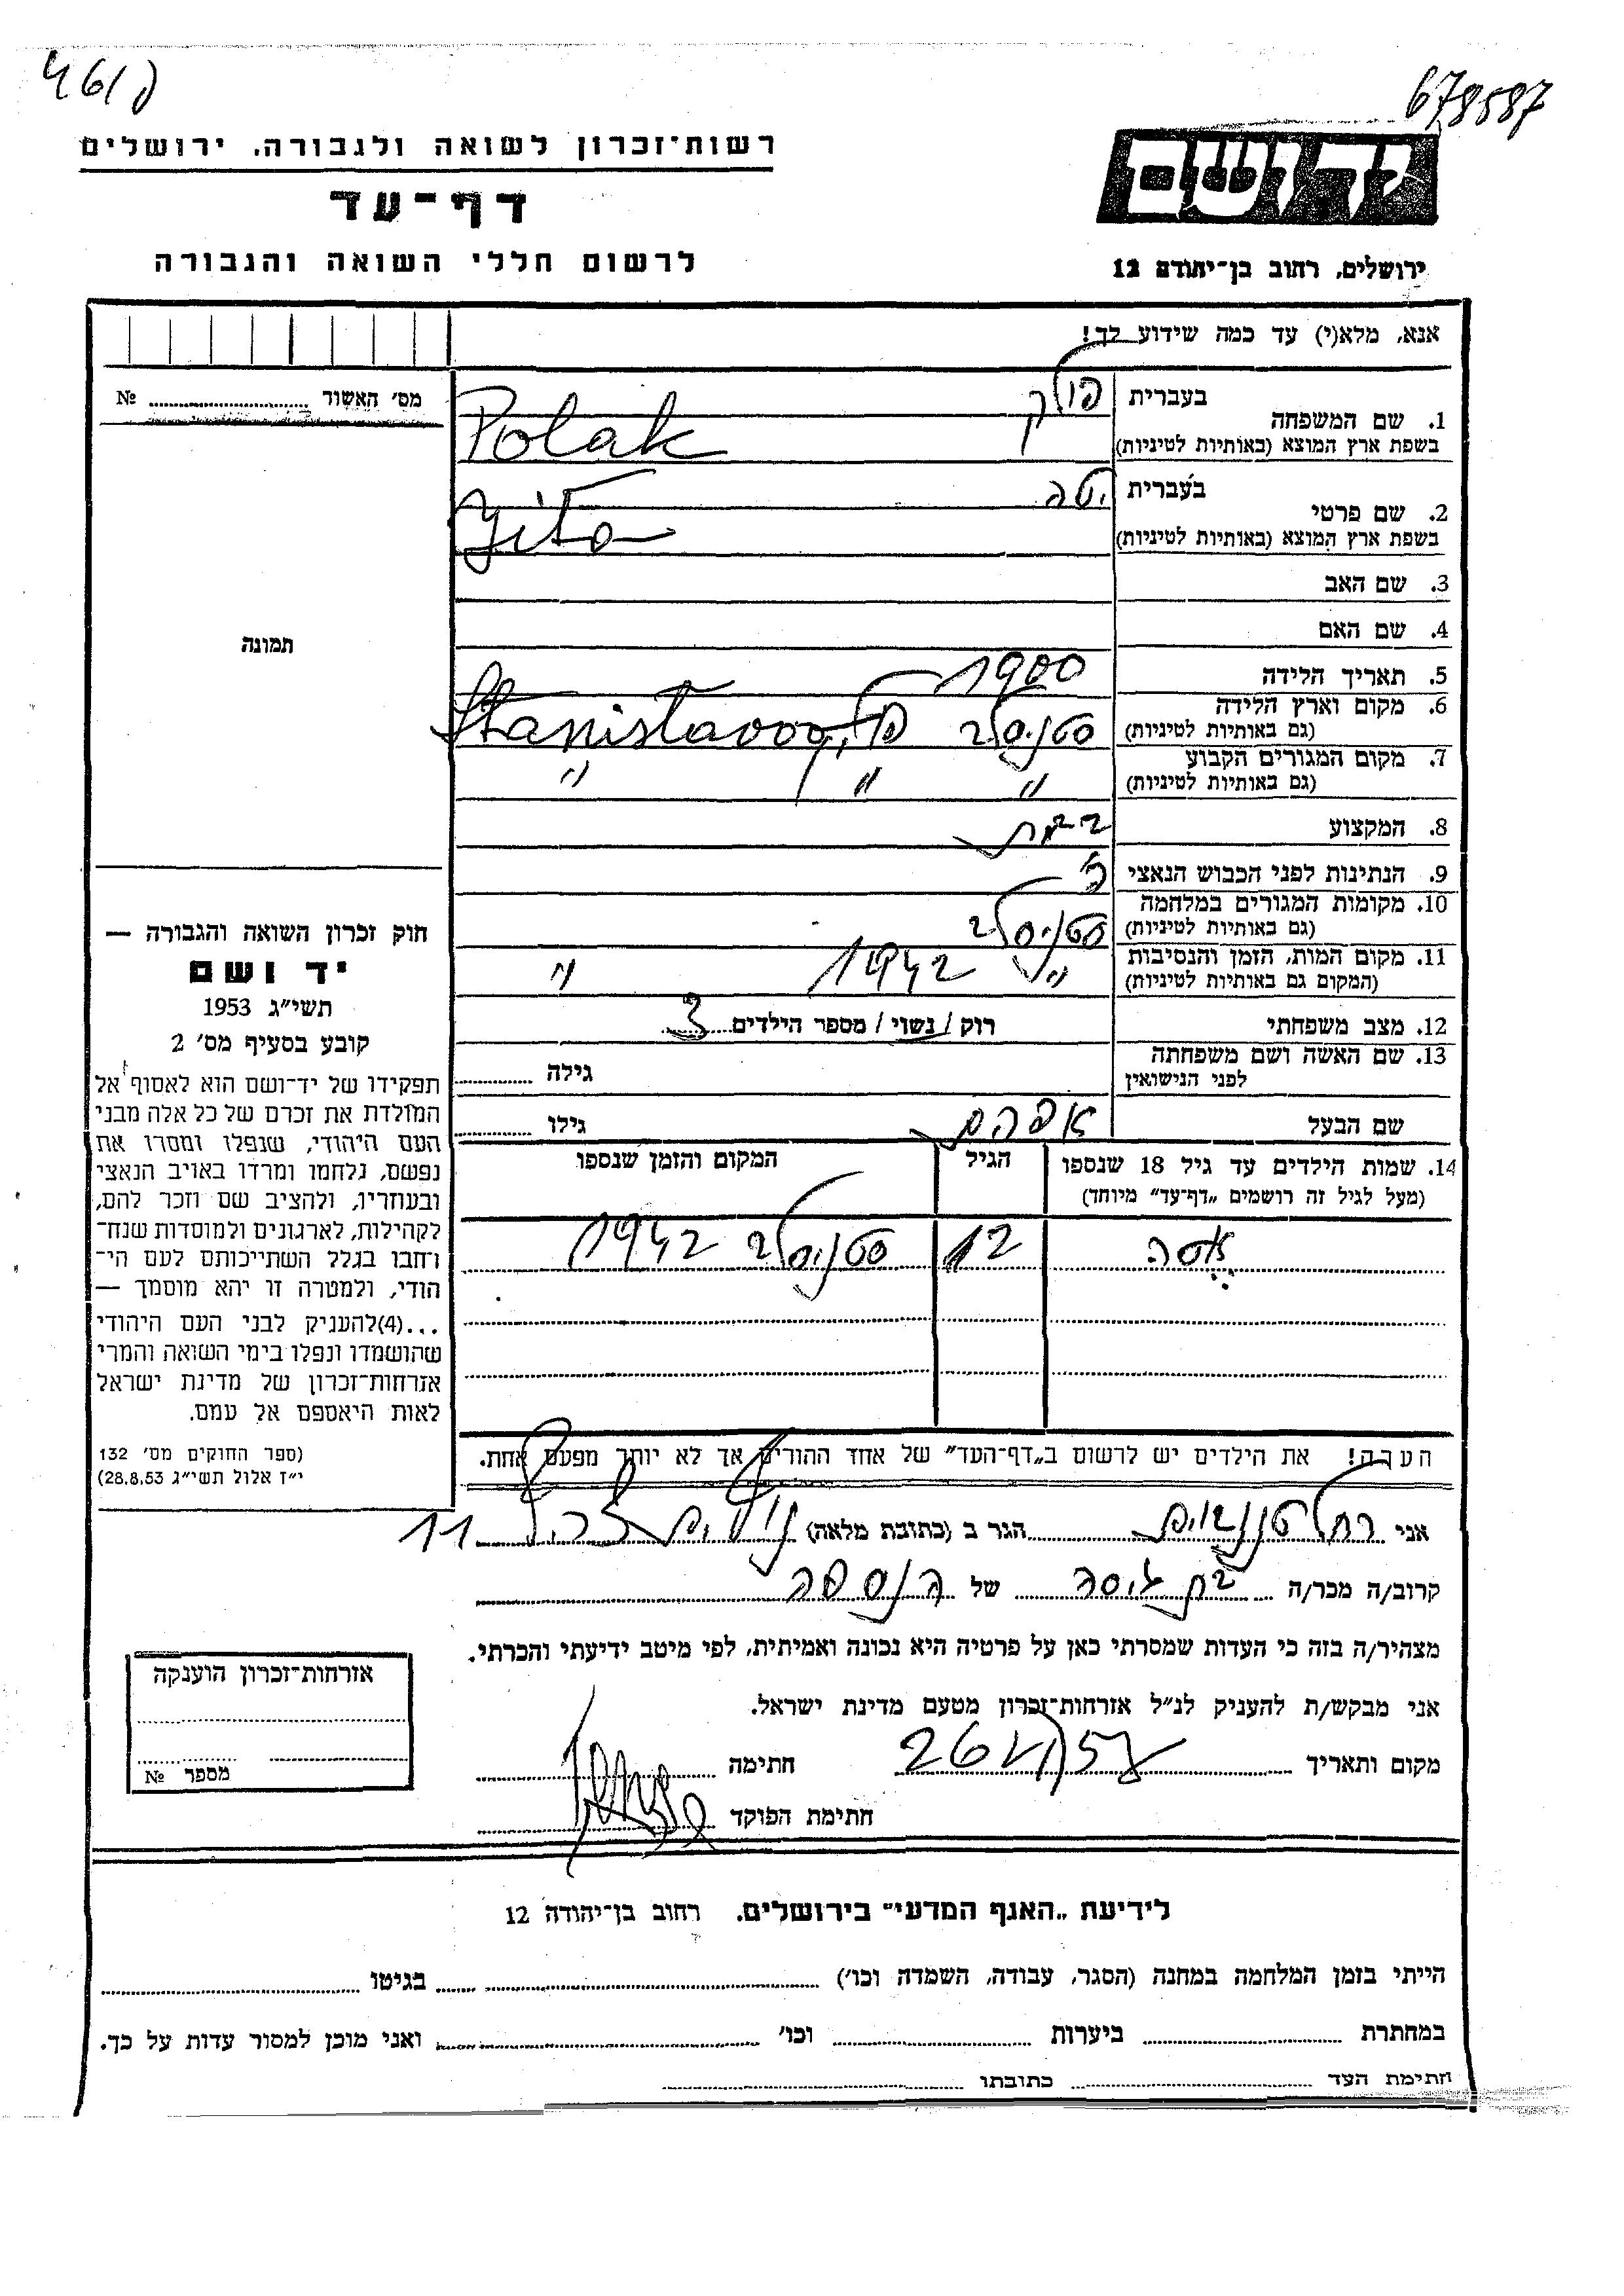 678587
רשות־זכרון לשואה ולגבורה, ירושלים
דף־עד
לרשום חללי השואה והגבורה
ירושלים, רחוב בן־יהודה 12
אנא, מלא(י) עד כמה שידוע לך!
מס׳ האשור № 
1. שם המשפחה
בעברית פולק
בשפת ארץ המוצא (באותיות לטיניות) Polak
2. שם פרטי
בעברית יטה
בשפת ארץ המוצא (באותיות לטיניות) Jita
3. שם האב
4. שם האם
תמונה
5. תאריך הלידה 1900
6. מקום וארץ הלידה
(גם באותיות לטיניות) סטניסלב פול, Stanislawow
7. מקום המגורים הקבוע
(גם באותיות לטיניות) " " "
8. המקצוע
9. הנתינות לפני הכבוש הנאצי פ׳
10. מקומות המגורים במלחמה
(גם באותיות לטיניות) סטניסלב
11. מקום המות, הזמן והנסיבות
(המקום גם באותיות לטיניות) " 1942 "
12. מצב משפחתי רוק / נשוי / מספר הילדים 3
13. שם האשה ושם משפחתה
לפני הנישואין גילה
שם הבעל אפרים גילו
14. שמות הילדים עד גיל 18 שנספו
(מעל לגיל זה רושמים „דף־עד" מיוחד)
הגיל
המקום והזמן שנספו
12 סטניסלב 1942
הערה! את הילדים יש לרשום ב„דף־העד" של אחד ההורים אך לא יותר מפעם אחת.
חוק זכרון השואה והגבורה —
יד ושם
תשי״ג 1953
קובע בסעיף מס׳ 2
תפקידו של יד־ושם הוא לאסוף אל
המולדת את זכרם של כל אלה מבני
העם היהודי, שנפלו ומסרו את
נפשם, נלחמו ומרדו באויב הנאצי
ובעוזריו, ולהציב שם וזכר להם,
לקהילות, לארגונים ולמוסדות שנח־
רחבו בגלל השתייכותם לעם הי־
הודי, ולמטרה זו יהא מוסמך —
...(4)להעניק לבני העם היהודי
שהושמדו ונפלו בימי השואה והמרי
אזרחות־זכרון של מדינת ישראל
לאות היאספם אל עמם.
(ספר החוקים מס׳ 132
י״ז אלול תשי״ג 28.8.53)
אני רחל טננבוים הגר ב (כתובת מלאה) 11
קרוב/ה מכר/ה בת גיסה של הנספה
מצהיר/ה בזה כי העדות שמסרתי כאן על פרטיה היא נכונה ואמיתית, לפי מיטב ידיעתי והכרתי.
אני מבקש/ת להעניק לנ״ל אזרחות־זכרון מטעם מדינת ישראל.
מקום ותאריך חתימה
חתימת הפוקד
אזרחות־זכרון הוענקה
מספר №
לידיעת „האגף המדעי" בירושלים. רחוב בן־יהודה 12
הייתי בזמן המלחמה במחנה (הסגר, עבודה, השמדה וכו׳) בגיטו
במחתרת ביערות וכו׳ ואני מוכן למסור עדות על כך.
חתימת העד כתובתו